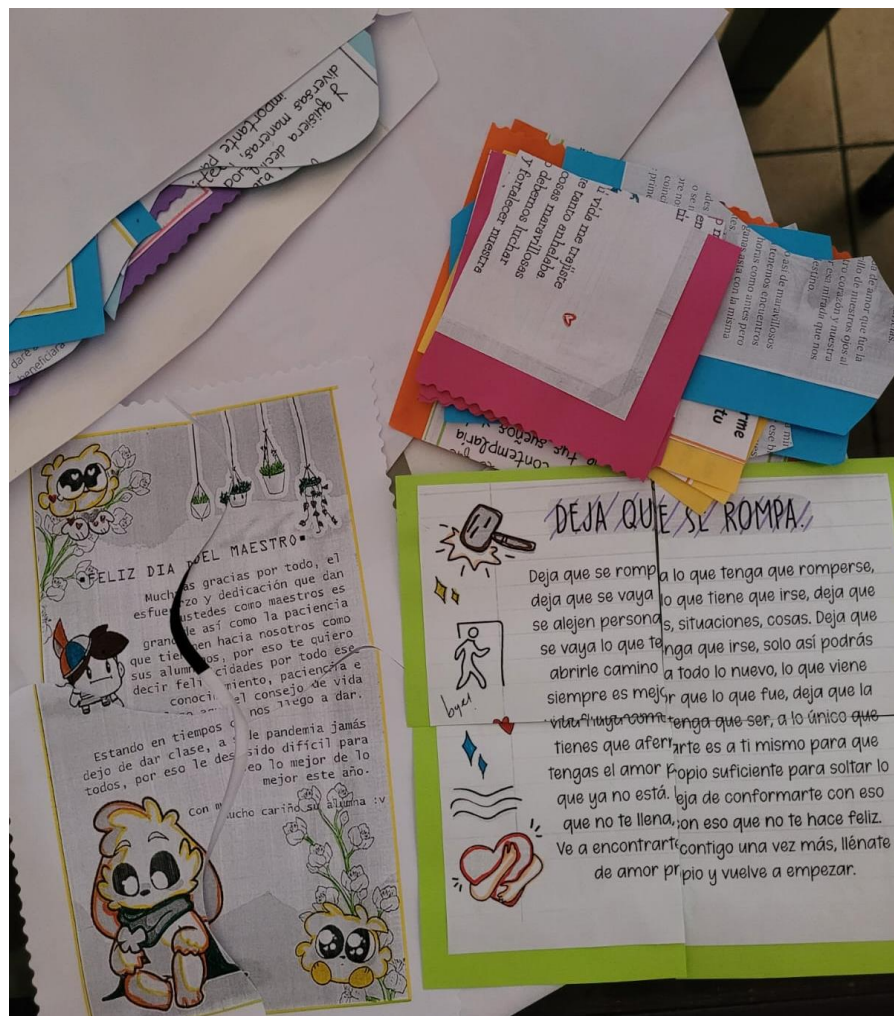 Y quisiera
diversas maneras,
importante
beneficiara
vida me trajiste
te tanto anhelaba
cosas maravillosas
debemos luchar
y fortalecer nuestra
a de amor que fue la
de nuestros ojos al
corazón y nuestra
esa mirada que nos
así de maravillosos
tenemos encuentros
horas como antes pero
hasta con la misma
contemplaria
tus sueños
tu
FELIZ DIA DEL MAESTRO
Muchas gracias por todo, el
esfuerzo y dedicación que dan
ustedes como maestros es
grande así como la paciencia
que tienen hacia nosotros como
sus alumnos, por eso te quiero
decir felicidades por todo ese
conocimiento, paciencia e
el consejo de vida
nos llego a dar.
Estando en tiempos de pandemia jamás
dejo de dar clase, a sido difícil para
todos, por eso le deseo lo mejor de lo
mejor este año.
Con mucho cariño su alumna :v
DEJA QUE SE ROMPA
Deja que se rompa lo que tenga que romperse,
deja que se vaya lo que tiene que irse, deja que
se alejen personas, situaciones, cosas. Deja que
se vaya lo que tenga que irse, solo así podrás
abrirle camino a todo lo nuevo, lo que viene
siempre es mejor que lo que fue, deja que la
vida fluya como tenga que ser, a lo único que
tienes que aferrarte es a ti mismo para que
tengas el amor propio suficiente para soltar lo
que ya no está. Deja de conformarte con eso
que no te llena, con eso que no te hace feliz.
Ve a encontrarte contigo una vez más, llénate
de amor propio y vuelve a empezar.
bye!